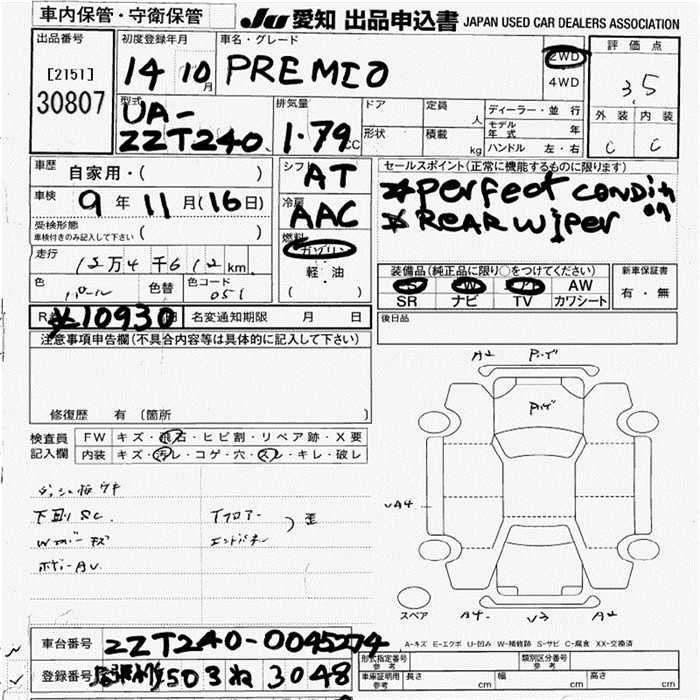 車内保管・守衛保管
JU 愛知 出品申込書 JAPAN USED CAR DEALERS ASSOCIATION
出品番号
[2151]
30807
初度登録年月
14 10月
車名・グレード
PREMIO
2WD
4WD
評価点
3.5
外装 内装
C C
型式
UA-
ZZT240
排気量
1.79 CC
ドア
定員 人
形状
積載 kg
ディーラー・並行
モデル年式 年
ハンドル 左・右
車歴 自家用・( )
車検 9年11月(16日)
受検形態
車検付きのみ記入して下さい ( )
走行
12万4千612km
色 パール
色替
色コード 051
シフト AT
冷房 AAC
燃料
ガソリン
軽・油
( )
セールスポイント(正常に機能するものに限ります)
*perfect condition
*REAR wiper
装備品(純正品に限り○をつけてください)
S W P AW
SR ナビ TV カワシート
新車保証書
有・無
後日品
R ¥10930
名変通知期限 月 日
注意事項申告欄(不具合内容等は具体的に記入して下さい)
修復歴 有 〔箇所 〕
検査員
記入欄
FW キズ・飛石・ヒビ割・リペア跡・X要
内装 キズ・汚レ・コゲ・穴・スレ・キレ・破レ
下回りSC.
ボディーAU
フロアー
エンドパネル
歪
A2
UA4
スペア
A4.
U3
A2
A-キズ E-エクボ U-凹み W-補修跡 S-サビ C-腐食 XX-交換済
車台番号 ZZT240-0045274
登録番号 尾張小牧503ね3048
形式指定番号 参考
類別区分番号 参考
車庫証明用 参考
長さ cm
幅 cm
高さ cm